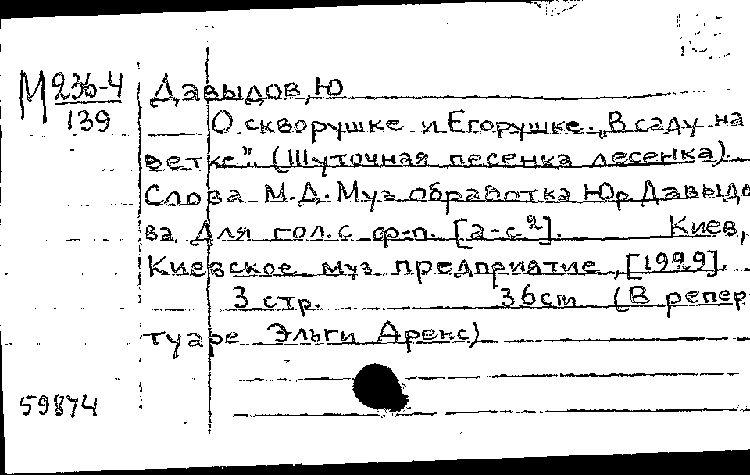 М 236-4
139
Давыдов, Ю
О скворушке и Егорушке. „В саду на
ветке". (Шуточная песенка лесенка).
Слова М.Д. Муз обработка Юр Давыдо
ва Для гол. с ф-п. [a-c²]. Киев,
Киевское муз предприятие, [1929].
3 стр. 36cm (В репер
туаре Эльги Аренс)
59874